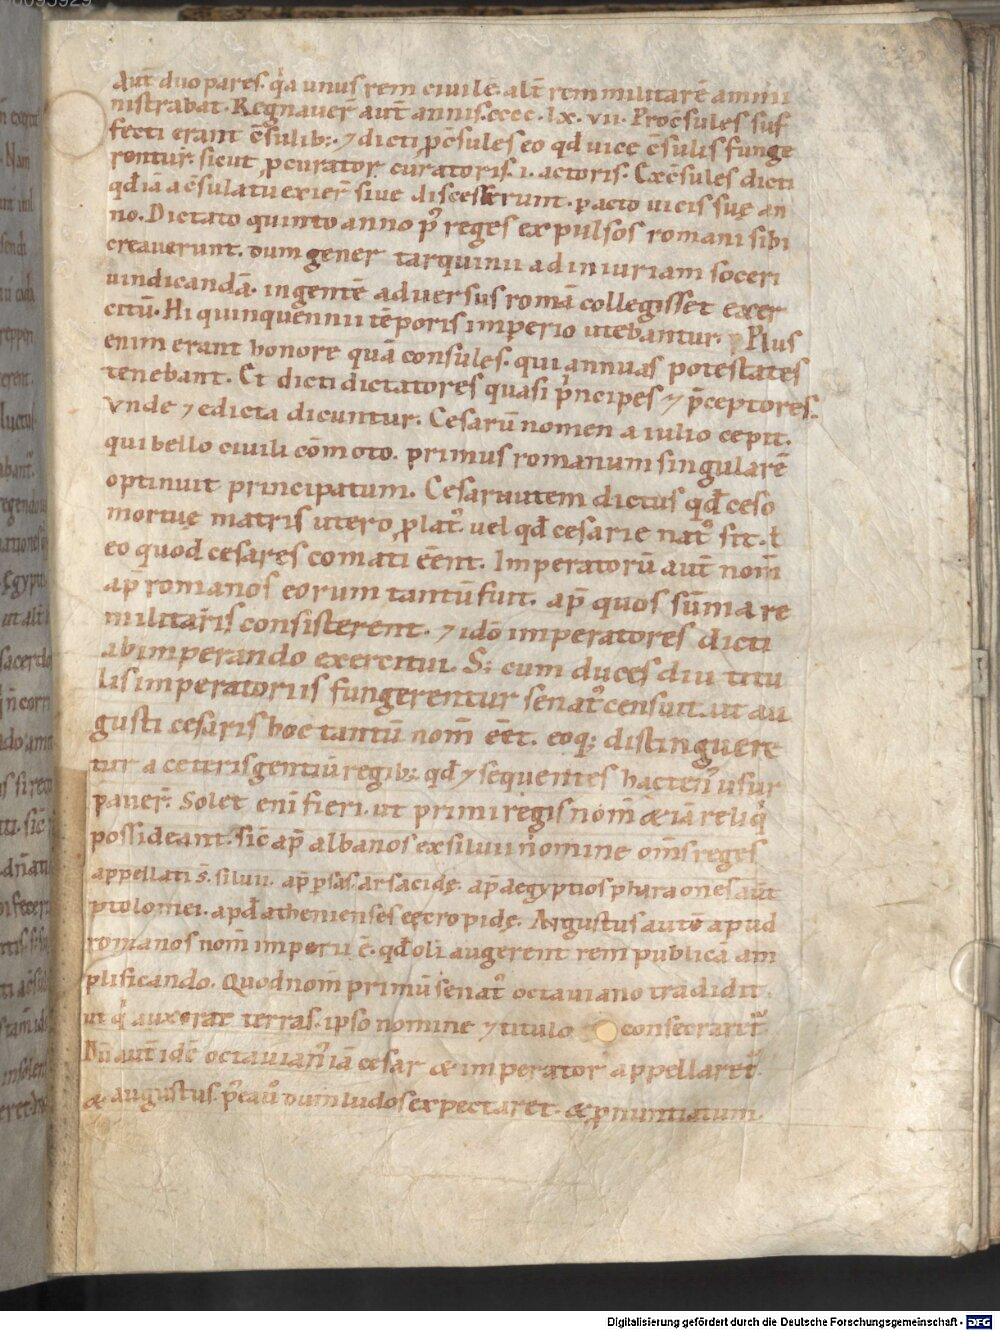 Aut̄ duo pares. q̇a unus rem ciuilē. alt̄ rem militarē ammi
nistrabat. Regnauer̄ aut̄ annis. cccc. lx. vii. Procs̄ules suf
fecti erant cs̄ulib;. ⁊ dicti ꝓcs̄ules eo qđ uice cs̄ulis funge
rentur. sicut ꝓcurator curatoris. i. actoris. Excs̄ules dicti
qđ iā a cs̄ulatu exier̄ siue discesserunt. ꝑacto uicis suę an
no. Dictato quinto anno p̄ reges expulsos romani sibi
creauerunt. dum gener tarquinii ad iniuriam soceri
uindicandā. ingentē aduersus romā collegisset exer
citū. Hi quinquennii tēporis imperio utebantur. Plus
enim erant honore quā consules. qui annuas potestates
tenebant. Et dicti dictatores quasi p̍ncipes ⁊ p̄ceptores.
Vnde ⁊ edicta dicuntur. Cesarū nomen a iulio cepit.
qui bello ciuili cōmoto. primus romanum singularē
optinuit principatum. Cesar autem dictus qđ ceso
mortuę matris utero ꝓlat᷒. uel qđ cesarie nat᷒ sit. ł
eo quod cesares comati eēnt. Imperatorū aut̄ nom̄
ap̄ romanos eorum tantū fuit. ap̄ quos sūma re
militaris consisterent. ⁊ idō imperatores dicti
ab imperando exercitui. S; cum duces diu titu
lis imperatoriis fungerentur senat᷒ censuit. ut au
gusti cesaris hoc tantū nom̄ eēt. eoq; distinguere
tur a ceteris gentiū regib;. qđ ⁊ sequentes hacten᷒ usur
pauer̄. Solet enī fieri. ut primi regis nom̄ & iā reliq̍
possideant. Sic̄ ap̄ albanos ex siluii nomine om̄s reges
appellati s̄. siluii. ap̄ ꝑsas. arsacidę. ap̄ aegyptios pharaones aut̄
ptolomei. apđ athenienses cecropidę. Augustus autē apud
romanos nom̄ imperii ē. qđ olī augerent rem publicā am
plificando. Quod nom̄ primū senat᷒ octauiano tradidit.
ut q̍ auxerat terras. ipso nomine ⁊ titulo consecrarit᷑.
Dū aut̄ idē octauian᷒ iā cesar & imperator appellaret᷑.
& augustus. dum ludos expectaret. & ꝓnuntiatum